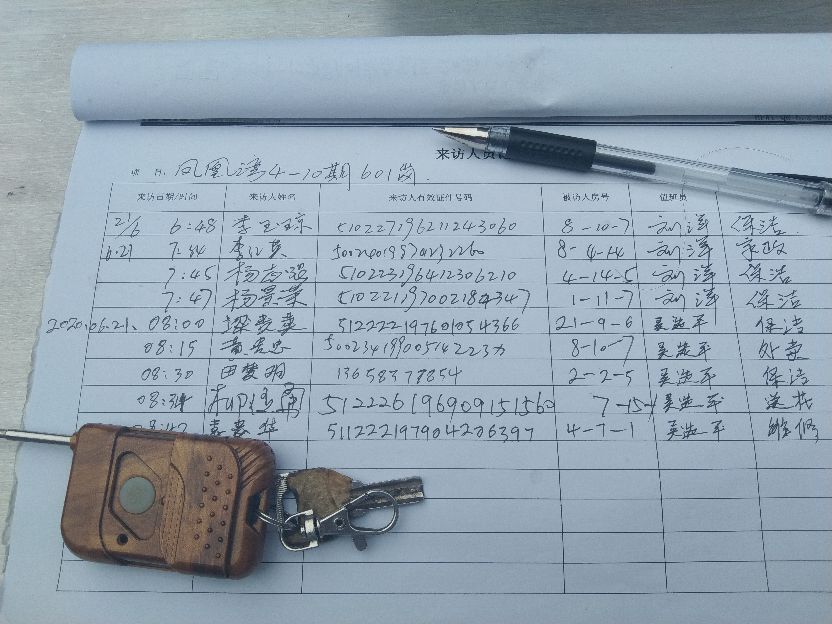 来访人员
项目: 凤凰湾4-10期601岗
来访日期/时间 来访人姓名 来访人有效证件号码 被访人房号 值班员
21/6 6:48 李玉琼 510227196211243060 8-10-7 刘洋 保洁
6.21 7:44 李红英 8-4-14 刘洋 家政
7:45 杨高强 510223196412306210 4-14-5 刘洋 保洁
7:47 杨景荣 510221197002184347 1-11-7 刘洋 保洁
2020.06.21. 08:00 512222197601054366 21-9-6 吴选军 保洁
08:15 黄 忠 8-10-7 吴选军 外卖
08:30 田 明 13658377854 2-2-5 吴选军 保洁
08:34 512226196909151560 7-15-1 吴选军
08:42 华 511222197904206397 4-7-1 吴选军 维修